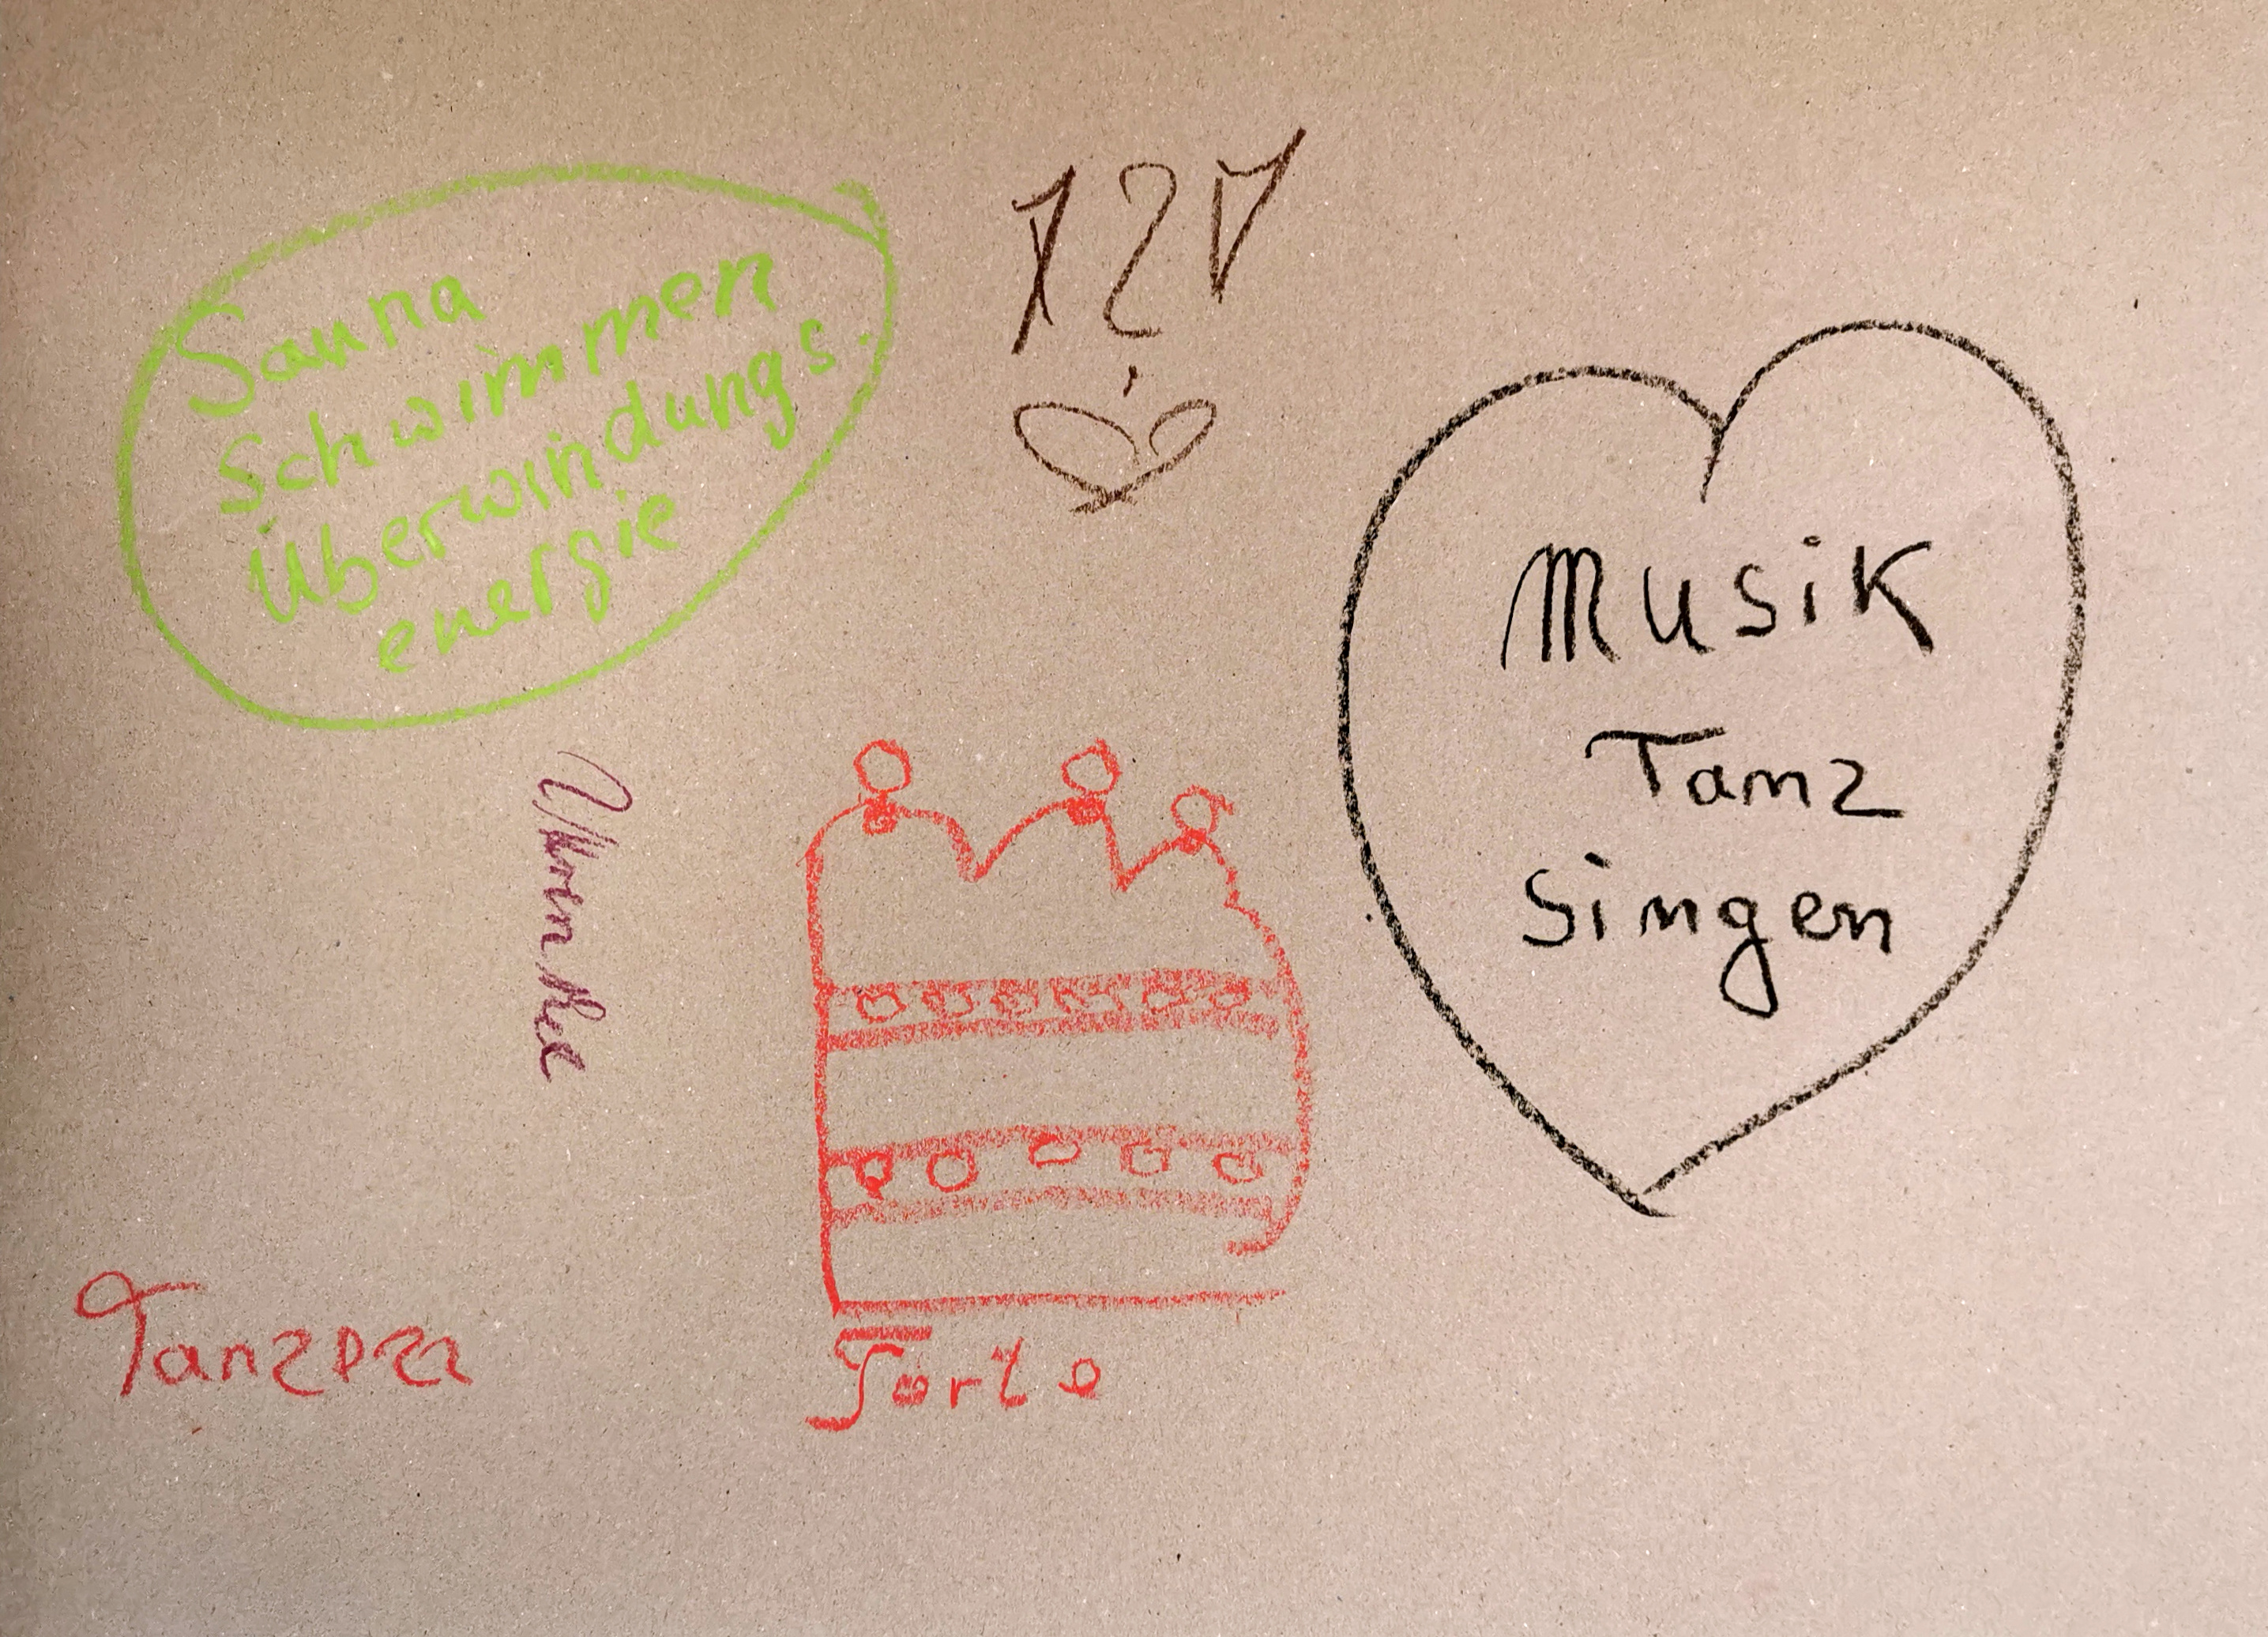 Sauna
Schwimmen
Überwindungs.
energie
Musik
Tanz
Singen
Torte